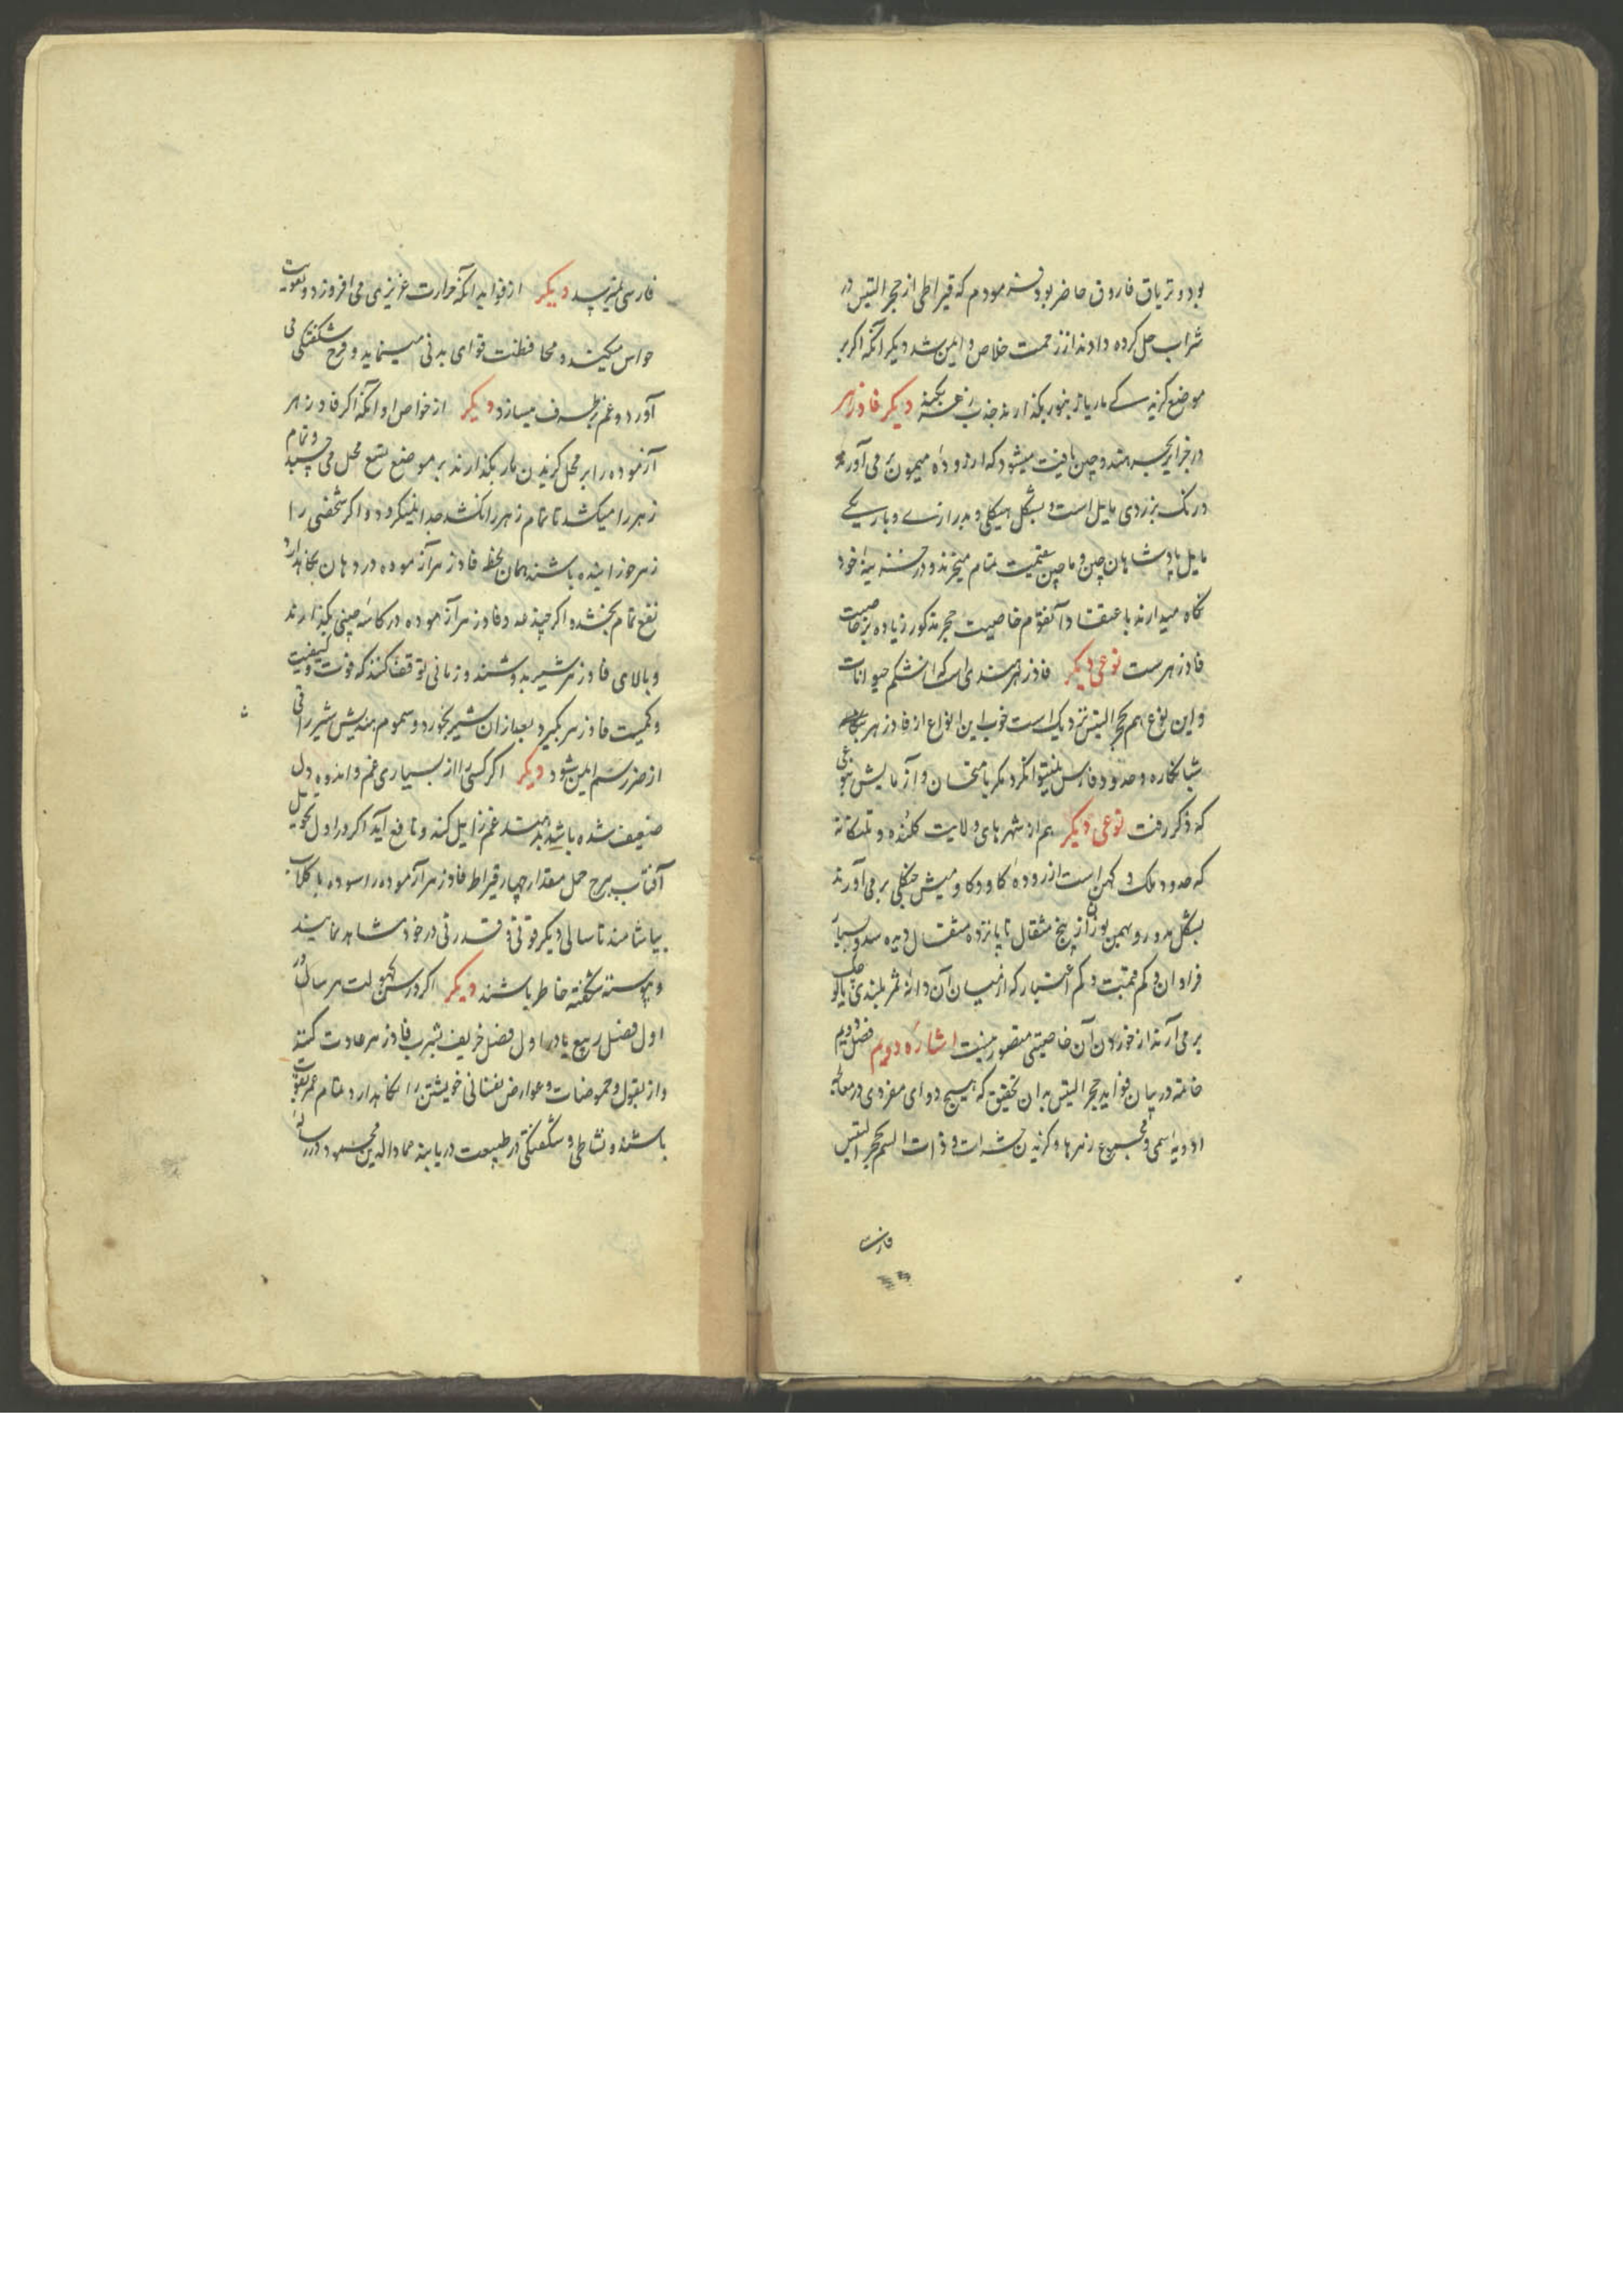 بود و تریاق فاروق حاضر بود فرمودم که قیراطی از حجر التیس در
شراب حل کرده دادند از زحمت خلاص و ایمن شد دیکر آنکه اکر بر
موضع کزید کی مار یا زنبور بکذارند جذب زهر بکند دیکر فادزهر
در جزایر بحر هند و چین یافت میشود که از رودهٔ میمون بر می آورند
در رنک بزردی مایل است و بشکل هیکلی و بدرازی و باریکی
مایل پادشاهان چین و ماچین بقیمت تمام میخرند و در خزینهٔ خود
نکاه میدارند باعتقاد آنقوم خاصیت حجر مذکور زیاده بر خاصیت
فادزهرست نوعی دیکر فادزهر هندی است که از شکم حیوانات
و این نوع هم بحجر التیس نزدیک است خوب این انواع از فادزهر
شبانکاره و حدود فارس نمیتوان کرد مکر بامتحان و آزمایش بنوعی
که ذکر رفت نوعی دیکر هم از شهرهای ولایت کلنده و تلنکانه
که حدود ملک و کهن است از رودهٔ کاو و کاومیش جنکلی بر می آورند
بشکل مدور و بهمین وزن از پنج مثقال تا پانزده مثقال و
فراوان و کم قیمت و کم اعتبار که از میان آن دانهٔ ثمر
بر می آرند از خوردن آن خاصیتی متصور نیست اشارهٔ دویم فصل دویم
خاتمه در بیان فواید حجر التیس بدان تحقیق که هیچ دوای مفردی در معالجه
ادویهٔ سمی و مجموع زهرها و کزیدن حشرات و ذوات السم بحجر التیس
فارسی
فارسی نمیرسد دیکر از فواید آنکه حرارت غریزی می افروزد و تقویت
حواس میکند و محافظت قوای بدنی مینماید و فرح و شکفتکی می
آورد و غم برطرف میسازد دیکر از خواص او آنکه اکر فادزهر
آزموده را بر محل کزیدن مار بکذارند بر موضع لسع محل می چسبد و تمام
زهر را میکشد تا تمام زهر را نکشد جدا نمیکردد و اکر شخصی را
زهر خورانیده باشند همان لحظه فادزهر آزموده در دهان نکاهدارد
نفع تمام بخشد و اکر چند عدد فادزهر آزموده در کاسهٔ چینی بکذارند
و بالای فادزهر شیر بدوشند و زمانی توقف کنند که قوت و کیفیت
و کمیت فادزهر بکیرد بعد از آن شیر بخورد و مسموم دهندش شیر را فی
از ضرر سم ایمن شود دیکر اکر کسی را از بسیاری غم و اندوه دل
ضعیف شده باشد بدهند غم زایل کند و نافع آید اکر در اول تحویل
آفتاب ببرج حمل مقدار چهار قیراط فادزهر آزموده را سوده با کلاب
بیاشامند تا سالی دیکر قوتی و قدرتی در خود مشاهده نمایند
و پیوسته شکفته خاطر باشند دیکر اکر در سن کهولت هر سال در
اول فصل ربیع یا در اول فصل خریف بشرب فادزهر عادت کنند
و از بقول و حموضات و عوارض نفسانی خویشتن را نکاهدارد تمام عمر بقوت
باشند و نشاطی و شکفتکی در طبیعت دریابند عمادالدین محمود در رسالهٔ